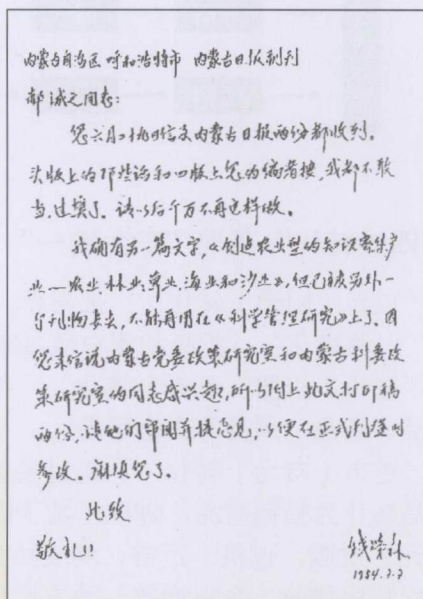 内蒙古自治区呼和浩特市 内蒙古日报副刊
郝诚之同志:
您六月二十九日信及内蒙古日报两份都收到。
头版上的那些话和四版上您的编者按,我都不敢
当,过奖了。请以后千万不再这样做。
我确有另一篇文字,《创造农业型的知识密集产
业——农业、林业、草业、海业和沙业》,但已被另外一
个刊物要去,不能再用在《科学管理研究》上了。因
您来信说内蒙古党委政策研究室和内蒙古科委政
策研究室的同志感兴趣,所以附上此文打印稿
两份,请他们审阅并提意见,以便在正式刊登时
参改。麻烦您了。
此致
敬礼!!
钱学森
1984.7.7